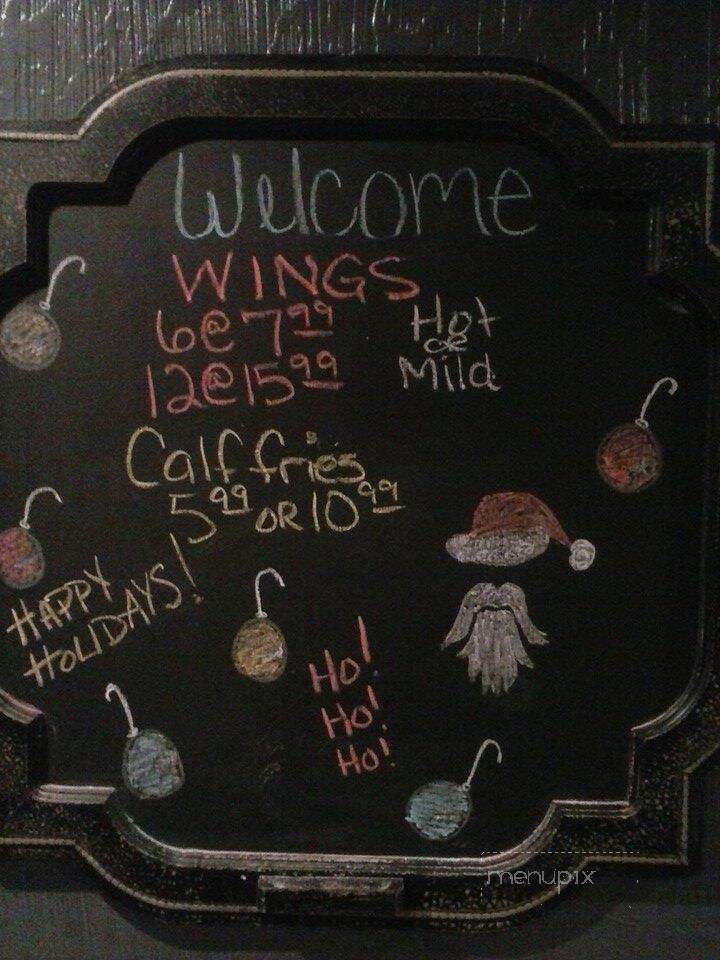 Welcome
WINGS
6@7.99
12@15.99
Hot
OR
Mild
Calf fries
5.99 OR 10.99
HAPPY
HOLIDAYS!
Ho!
Ho!
Ho!
menupix